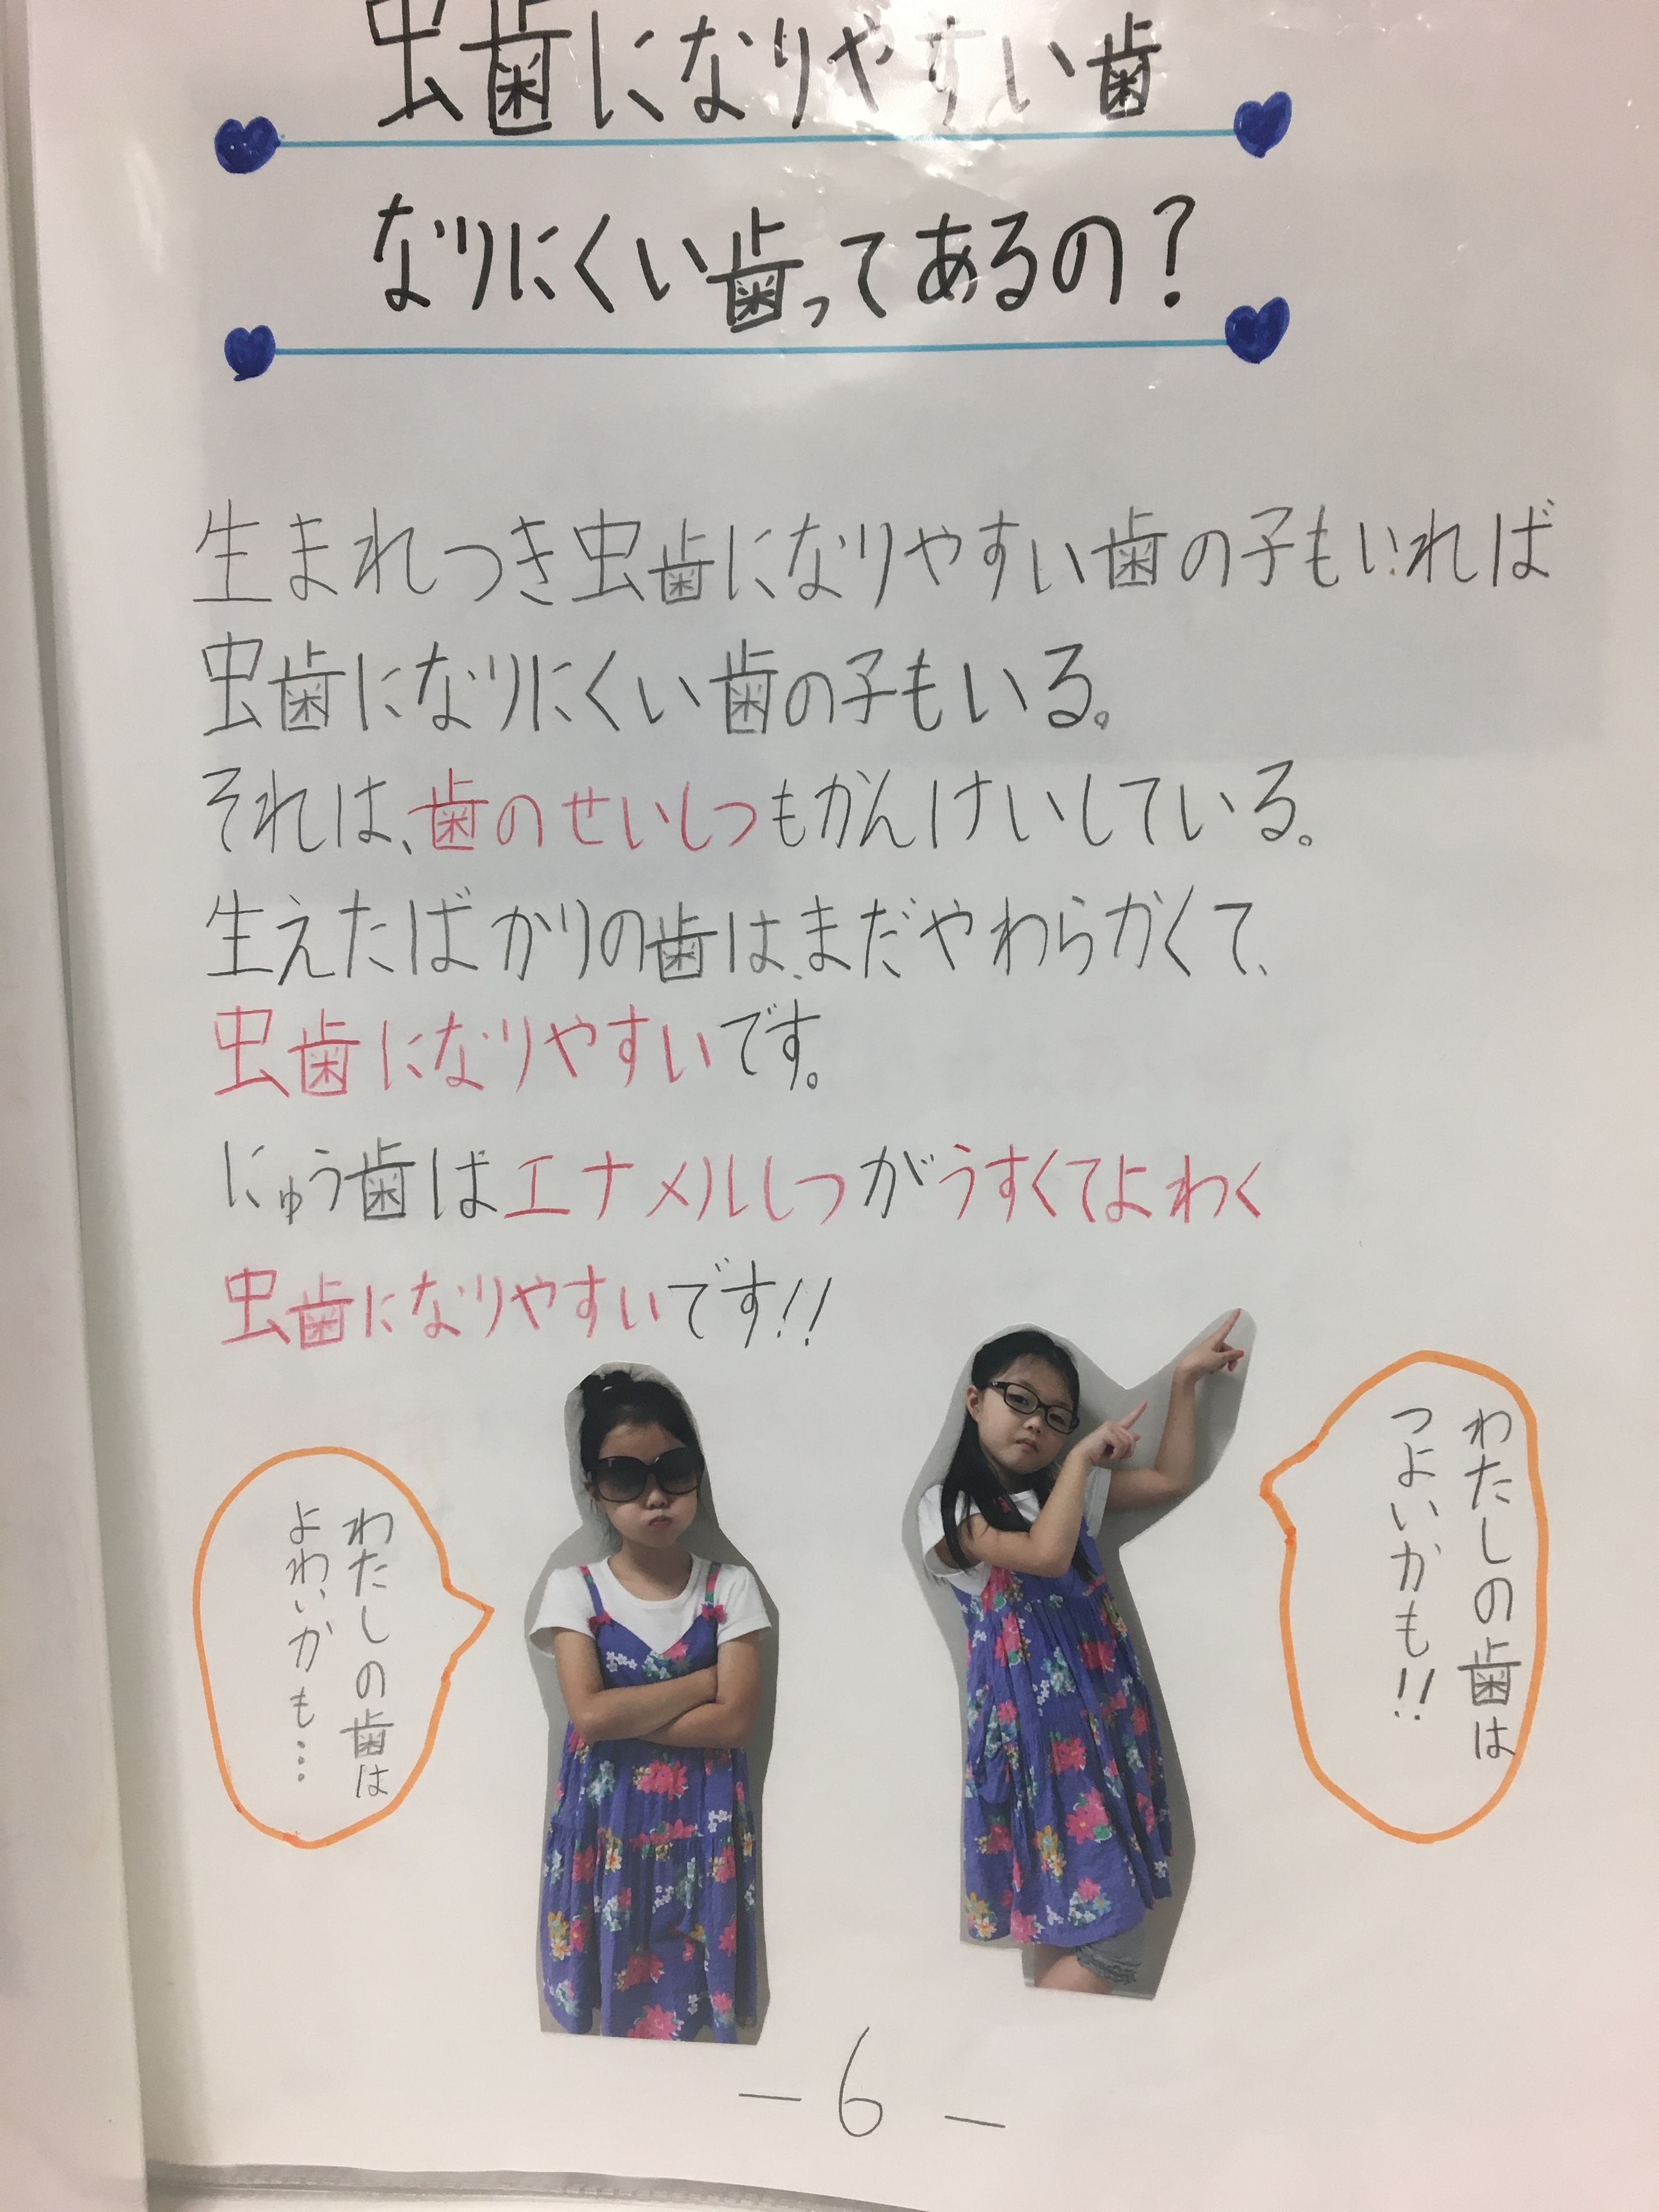 虫歯になりやすい歯
なりにくい歯ってあるの？
生まれつき虫歯になりやすい歯の子もいれば
虫歯になりにくい歯の子もいる。
それは、歯のせいしつもかんけいしている。
生えたばかりの歯は、まだやわらかくて、
虫歯になりやすいです。
にゅう歯はエナメルしつがうすくてよわく
虫歯になりやすいです!!
わたしの歯は
よわいかも…
わたしの歯は
つよいかも!!
－6－